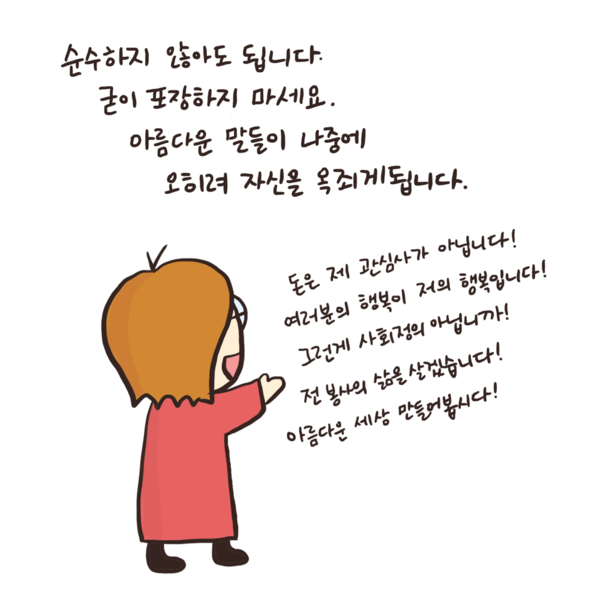 순수하지 않아도 됩니다.
굳이 포장하지 마세요.
아름다운 말들이 나중에
오히려 자신을 옥죄게됩니다.
돈은 제 관심사가 아닙니다!
여러분의 행복이 저의 행복입니다!
그런게 사회정의 아닙니까!
전 봉사의 삶을 살겠습니다!
아름다운 세상 만들어봅시다!